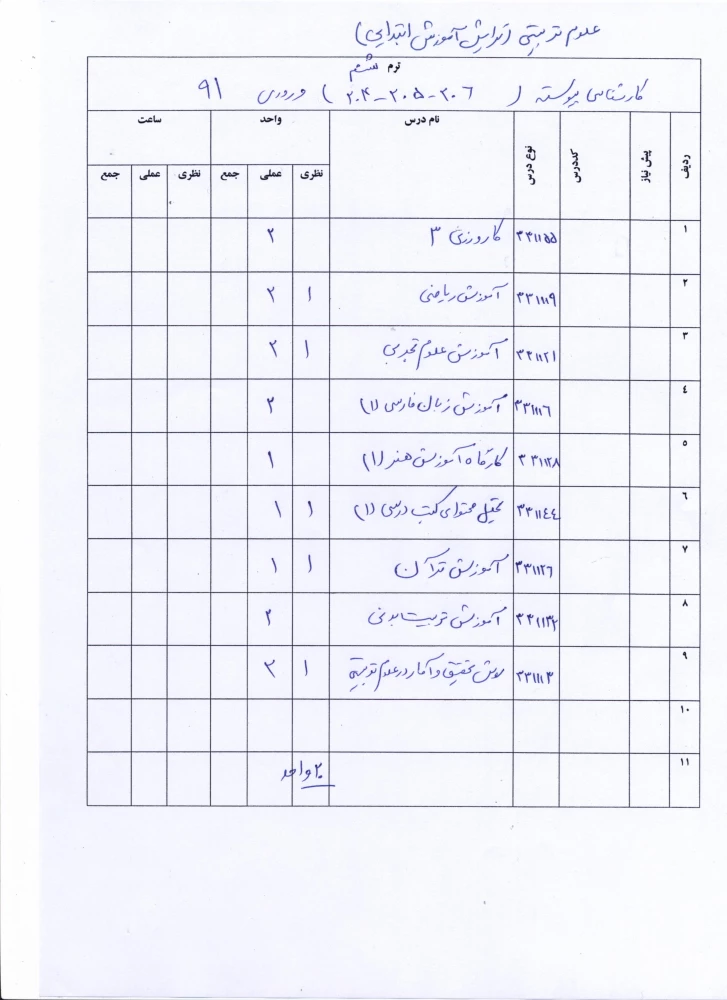 علوم تربیتی (گرایش آموزش ابتدایی)
ترم ششم
کارشناسی پیوسته (۲۰۶-۲۰۵-۲۰۴) ورودی ۹۱
ردیف پیش نیاز کددرس نوع درس نام درس واحد ساعت
نظری عملی جمع نظری عملی جمع
۱ ۳۳۱۱۵۵ کارورزی ۳ ۲
۲ ۳۳۱۱۱۹ آموزش ریاضی ۱ ۲
۳ ۳۳۱۱۲۱ آموزش علوم تجربی ۱ ۲
۴ ۳۳۱۱۱۶ آموزش زبان فارسی (۱) ۲
۵ ۳۳۱۱۲۸ کارگاه آموزش هنر (۱) ۱
۶ ۳۳۱۱۴۴ تحلیل محتوای کتب درسی (۱) ۱ ۱
۷ ۳۳۱۱۲۶ آموزش قرآن ۱ ۱
۸ ۳۳۱۱۳۲ آموزش تربیت بدنی ۲
۹ ۳۳۱۱۱۳ روش تحقیق و آمار در علوم تربیتی ۱ ۲
۱۰
۱۱ ۲۰ واحد